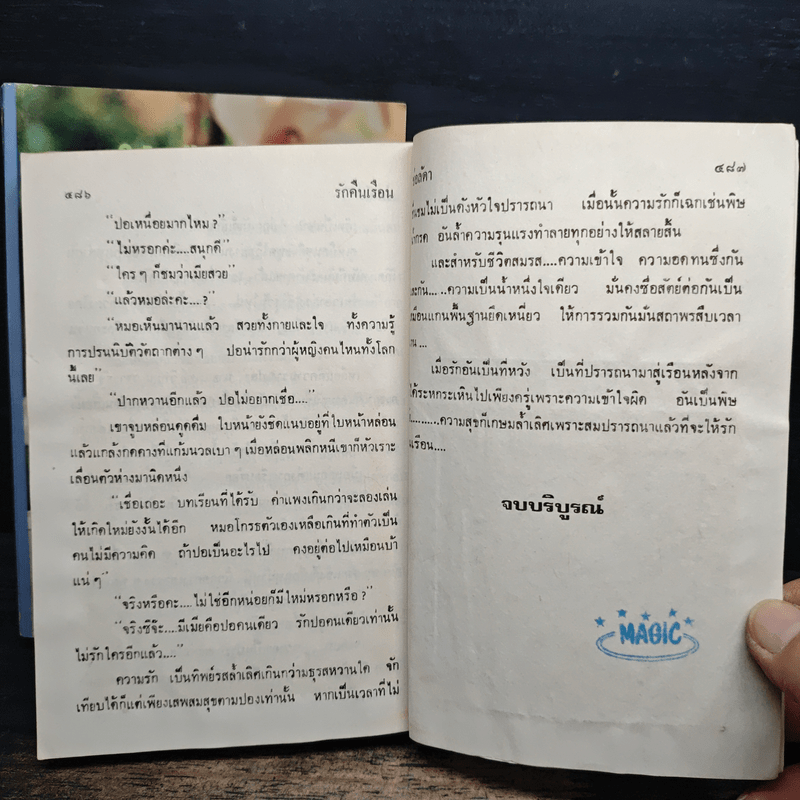 ๔๘๖ รักคืนเรือน
“ปอเหนื่อยมากไหม ?”
“ไม่หรอกค่ะ.... สนุกดี”
“ใคร ๆ ก็ชมว่าเมียสวย”
“แล้วหมอล่ะคะ... ?”
“หมอเห็นมานานแล้ว สวยทั้งกายและใจ ทั้งความรู้
การปรนนิบัติวัตถากต่าง ๆ ปอน่ารักกว่าผู้หญิงคนไหนทั้งโลก
นี้เลย”
“ปากหวานอีกแล้ว ปอไม่อยากเชื่อ....”
เขาจูบหล่อนดูดดื่ม ใบหน้ายังชิดแนบอยู่ที่ใบหน้าหล่อน
แล้วแกล้งกดคางที่แก้มนวลเบา ๆ เมื่อหล่อนพลิกหนีเขาก็หัวเราะ
เลื่อนตัวห่างมานิดหนึ่ง
“เชื่อเถอะ บทเรียนที่ได้รับ ค่าแพงเกินกว่าจะลองเล่น
ให้เกิดใหม่ยังงั้นได้อีก หมอโกรธตัวเองเหลือเกินที่ทำตัวเป็น
คนไม่มีความคิด ถ้าปอเป็นอะไรไป คงอยู่ต่อไปเหมือนบ้า
แน่ ๆ”
“จริงหรือคะ.... ไม่ใช่อีกหน่อยก็มีใหม่หรอกหรือ ?”
“จริงซิจ๊ะ.... มีเมียคือปอคนเดียว รักปอคนเดียวเท่านั้น
ไม่รักใครอีกแล้ว....”
ความรัก เป็นทิพย์รสล้ำเลิศเกินกว่ามธุรสหวานใด จัก
เทียบได้ก็แต่เพียงเสพสมสุขตามปองเท่านั้น หากเป็นเวลาที่ไม่
๔๘๗
ไม่เป็นดังหัวใจปรารถนา เมื่อนั้นความรักก็เฉกเช่นพิษ
อันล้ำความรุนแรงทำลายทุกอย่างให้สลายสิ้น
และสำหรับชีวิตสมรส....ความเข้าใจ ความอดทนซึ่งกัน
และกัน.....ความเป็นน้ำหนึ่งใจเดียว มั่นคงซื่อสัตย์ต่อกันเป็น
เหมือนแกนพื้นฐานยึดเหนี่ยว ให้การรวมกันมั่นสถาพรสืบเวลา
เมื่อรักอันเป็นที่หวัง เป็นที่ปรารถนามาสู่เรือนหลังจาก
ได้ระหกระเหินไปเพียงครู่เพราะความเข้าใจผิด อันเป็นพิษ
..........ความสุขก็เกษมล้ำเลิศเพราะสมปรารถนาแล้วที่จะให้รัก
คืนเรือน....
จบบริบูรณ์
MAGIC